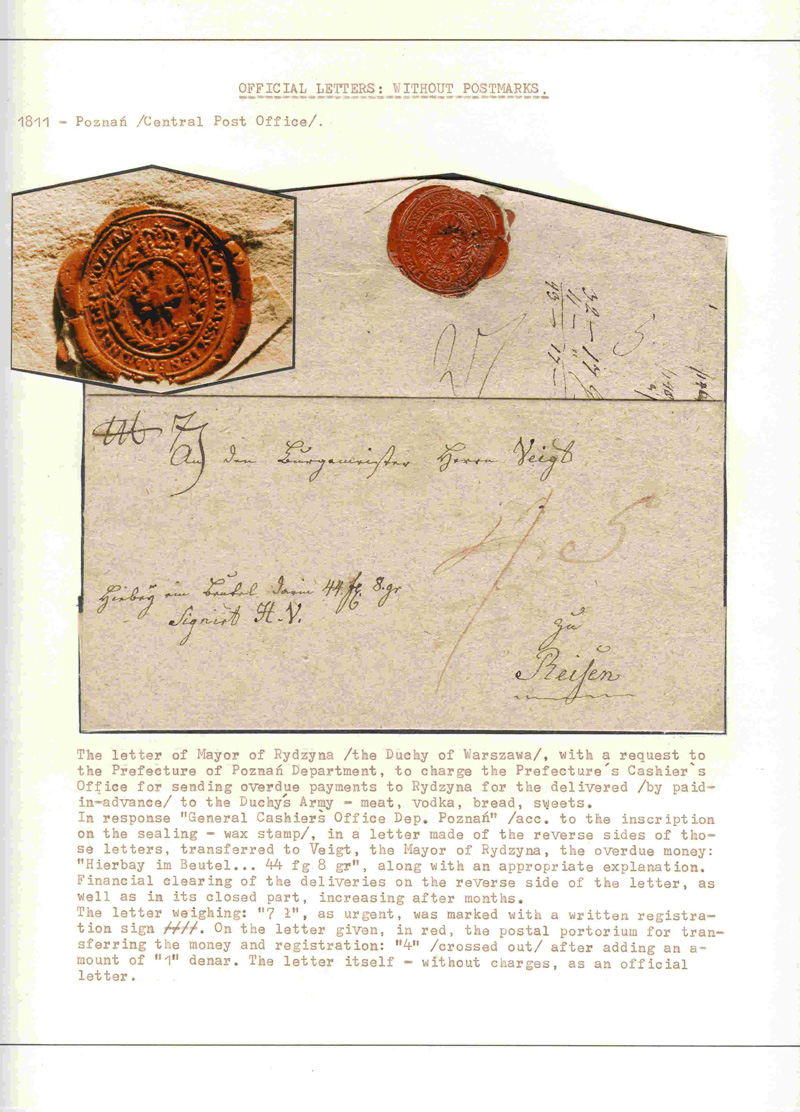 OFFICIAL LETTERS: WITHOUT POSTMARKS.
1811 - Poznań /Central Post Office/.
7
An den Burgemeister Herrn Veigt
4 5
Hiebey ein Beutel darin 44 fl. 8. gr
Signirt H. V.
zu
Reisen
The letter of Mayor of Rydzyna /the Duchy of Warszawa/, with a request to
the Prefecture of Poznań Department, to charge the Prefecture´s Cashier`s
Office for sending overdue payments to Rydzyna for the delivered /by paid-
in-advance/ to the Duchy´s Army - meat, vodka, bread, sweets.
In response "General Cashier´s Office Dep. Poznań" /acc. to the inscription
on the sealing - wax stamp/, in a letter made of the reverse sides of tho-
se letters, transferred to Veigt, the Mayor of Rydzyna, the overdue money:
"Hierbay im Beutel... 44 fg 8 gr", along with an appropriate explanation.
Financial clearing of the deliveries on the reverse side of the letter, as
well as in its closed part, increasing after months.
The letter weighing: "7 l", as urgent, was marked with a written registra-
tion sign ////. On the letter given, in red, the postal portorium for tran-
sferring the money and registration: "4" /crossed out/ after adding an a-
mount of "1" denar. The letter itself - without charges, as an official
letter.